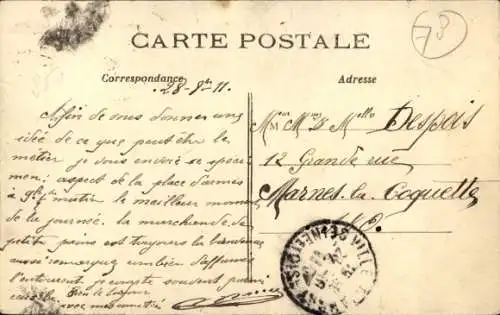 78
CARTE POSTALE
Correspondance
Adresse
28-8bre 11.
Afin de vous donner une
idée de ce que peut être le
métier je vous envoie ce spéci
men; aspect de la place d'armes
à 9h du matin le meilleur moment
de la journée. la marchande de
petits pains est toujours la bienvenue
aussi remarquez combien d'affamés
l'entourent je compte souvent parmi
Mieur Mme & Melle Despois
12 Grande rue
Marnes-la-Coquette